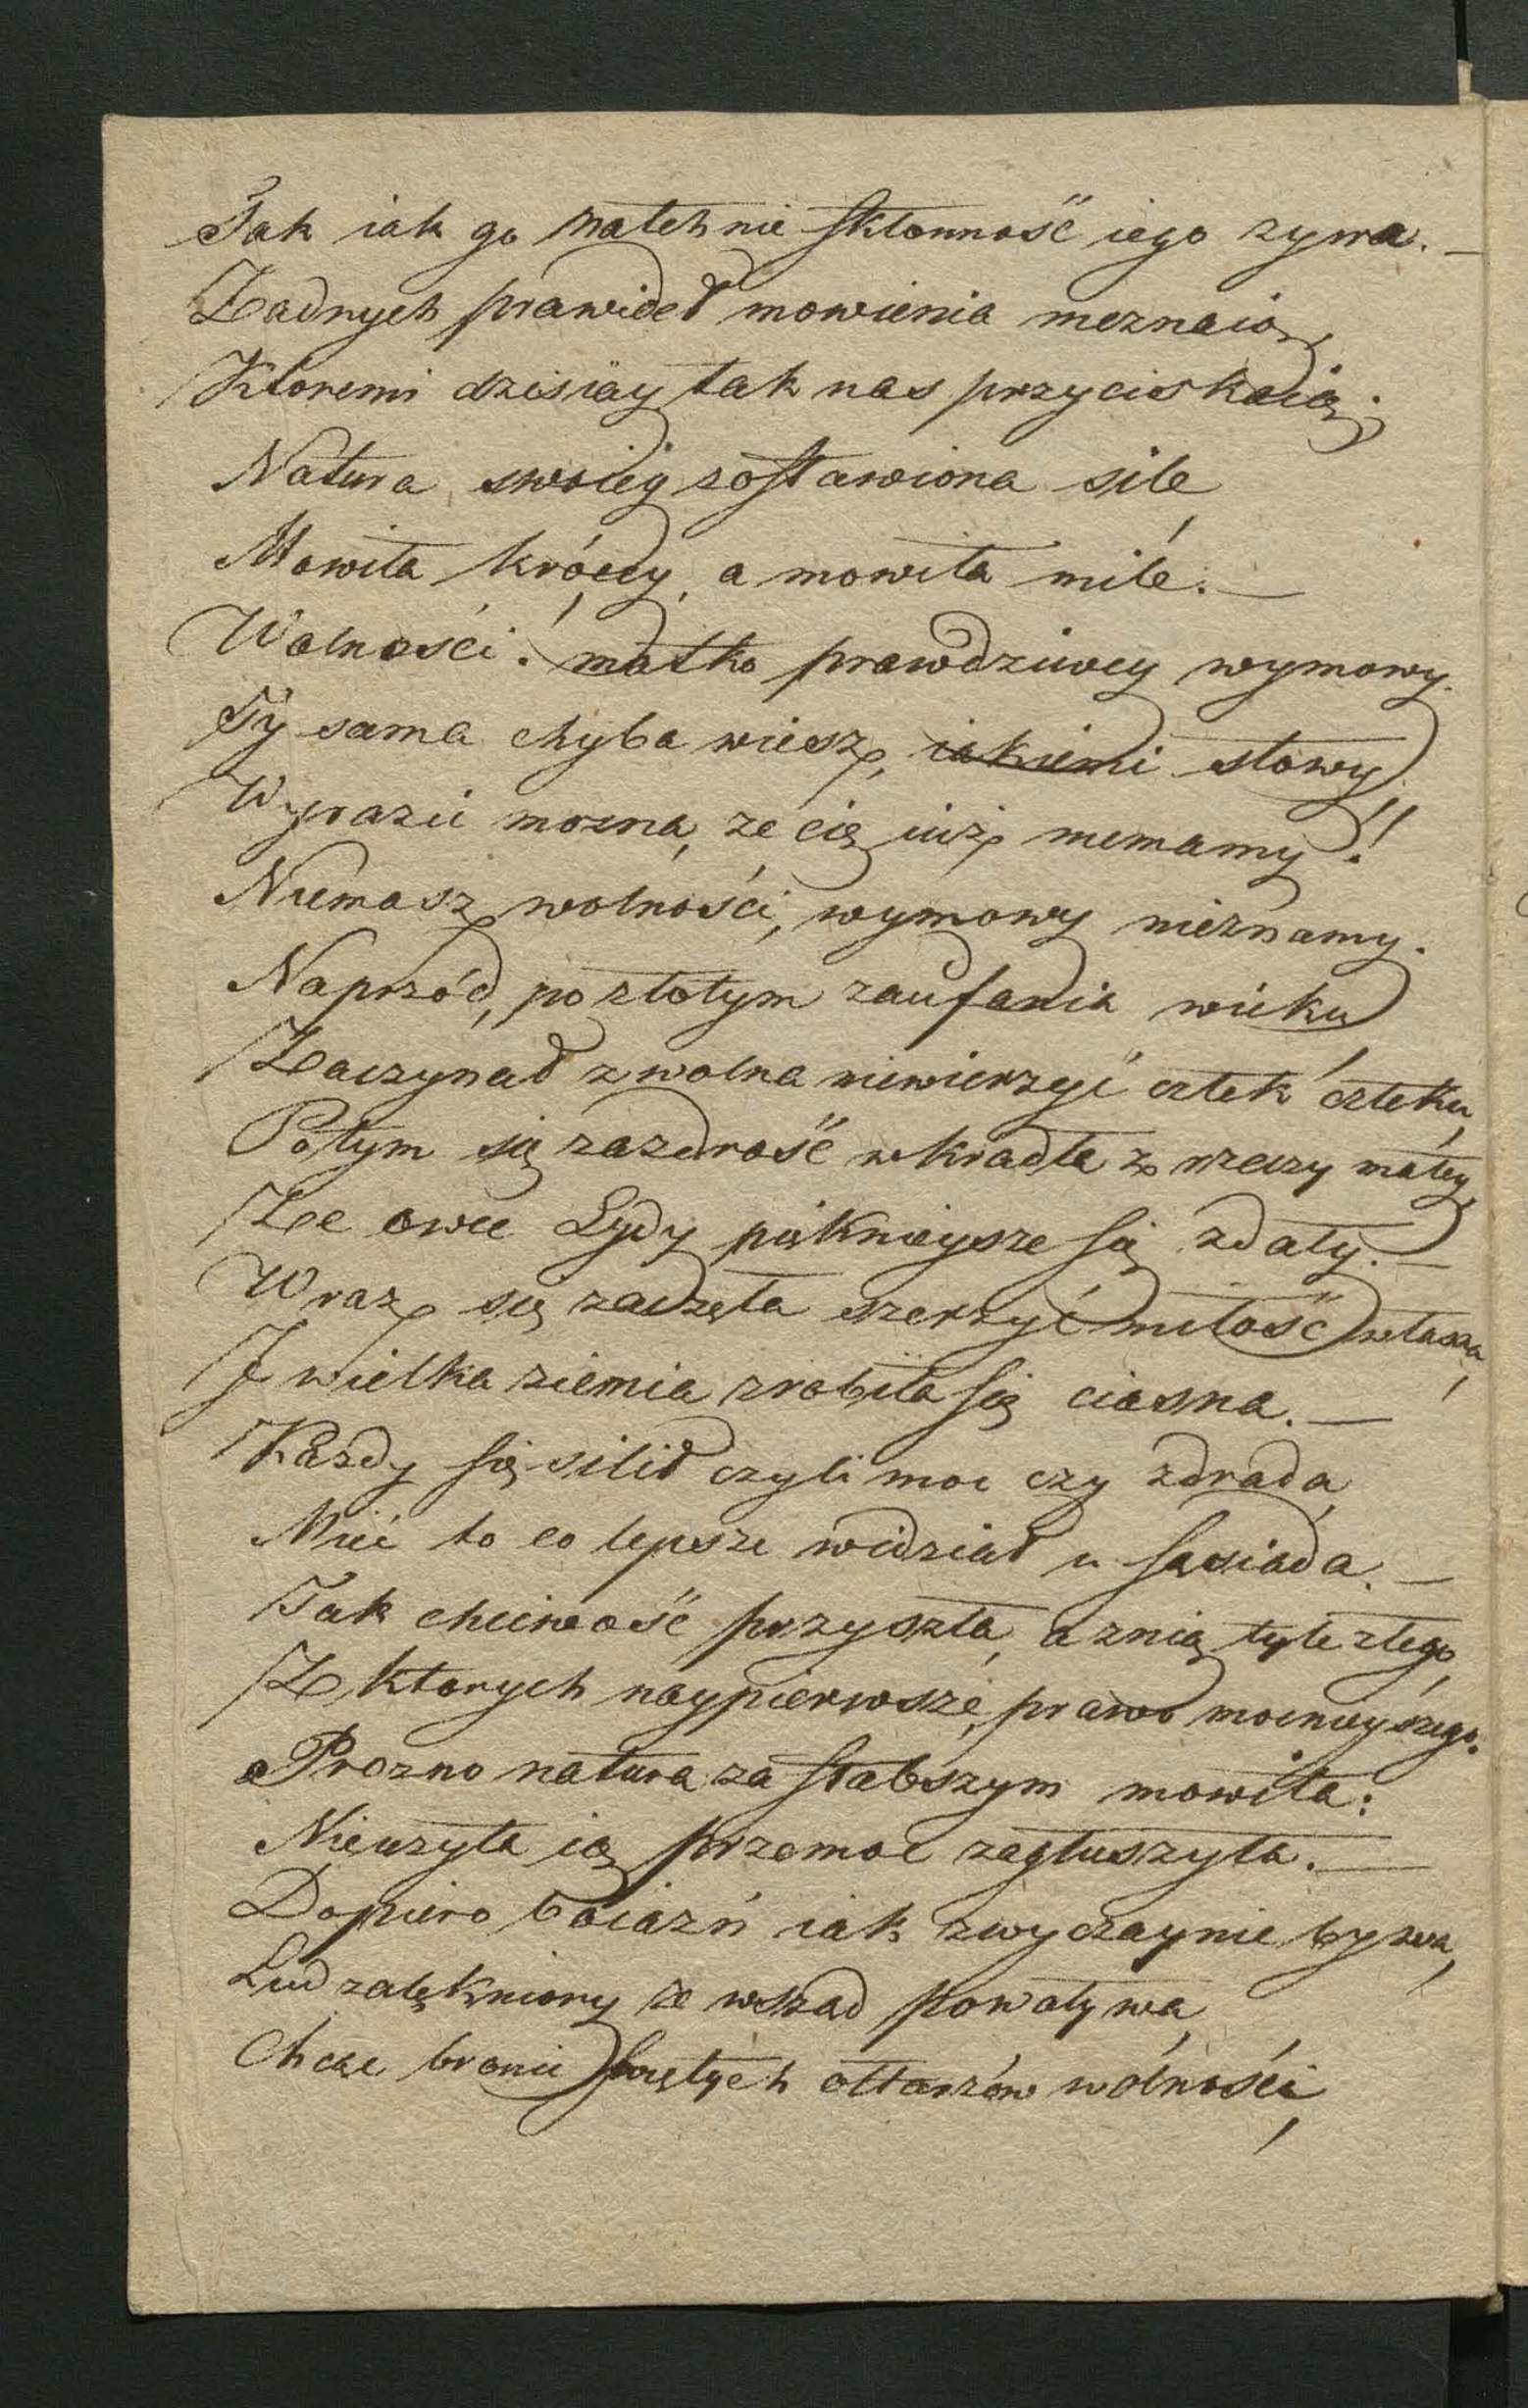 Tak iak go natchnie skłonność iego zywa. —
Zadnych prawideł mowienia nieznaią,
Ktoremi dzisiay tak nas przyciskaią;
Natura swoiey zostawiona sile,
Mowiła króccy, a mowiła mile. —
Wolności! matko prawdziwey wymowy.
Ty sama chyba wiesz, iakiemi słowy
Wyrazić mozna, ze cię iuż niemamy!!
Niemasz wolności, wymowy nieznamy.
Naprzód, po złotym zaufania wieku
Zaczynał zwolna niewierzyć człek człeku,
Potym się zazdrość wkradła z rzeczy małey,
Ze owce Lydy pięknieysze się zdały. —
Wraz się zaczęła szerzyć miłość własna,
I wielka ziemia zrobiła się ciasna. —
Kazdy się silił czyli moc czy zdrada,
Mieć to co lepsze widział u sąsiada. —
Tak chciwość przyszła, a znią tyle złego,
Z ktorych naypierwsze, prawo mocnieyszego.
Prozno natura za słabszym mowiła:
Nieuzyta ią przemoc zagłuszyła. —
Dopiero boiazń iak zwyczaynie bywa,
Lud zalękniony ze wsząd powoływa,
Chcąc bronić świętych ołtarzów wolności,